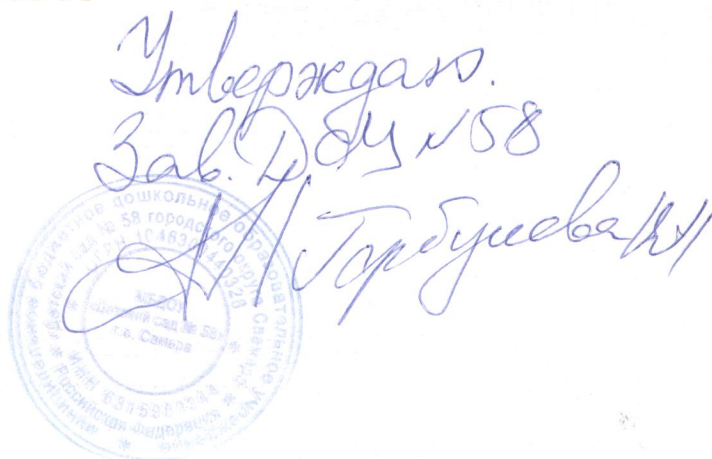 Утверждаю.
Зав. ДОУ №58
Горбунова
муниципальное бюджетное дошкольное образовательное учреждение
«Детский сад № 58 городского округа Самара
МБДОУ
«Детский сад № 58»
г.о. Самара
Российская Федерация